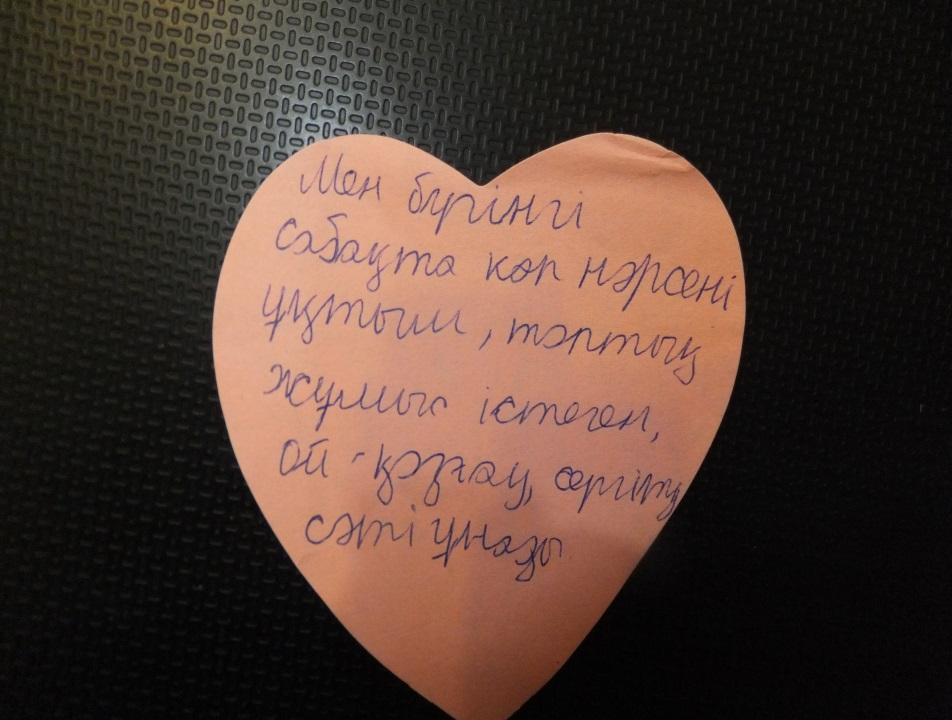 Мен бүгінгі
сабақта көп нәрсені
ұқтым, топтық
жұмыс істеген,
ой-қозғау, сергіту
сәті ұнады